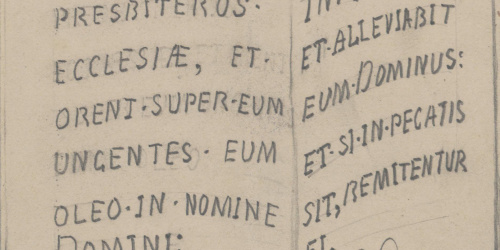 PRESBITEROS·
ECCLESIÆ, ET·
ORENT·SUPER·EUM
UNGENTES · EUM
OLEO·IN·NOMINE
DOMINI:
ET·ALLEVIABIT
EUM·DOMINUS:
ET·SI·IN·PECATIS
SIT, REMITENTUR
EI.